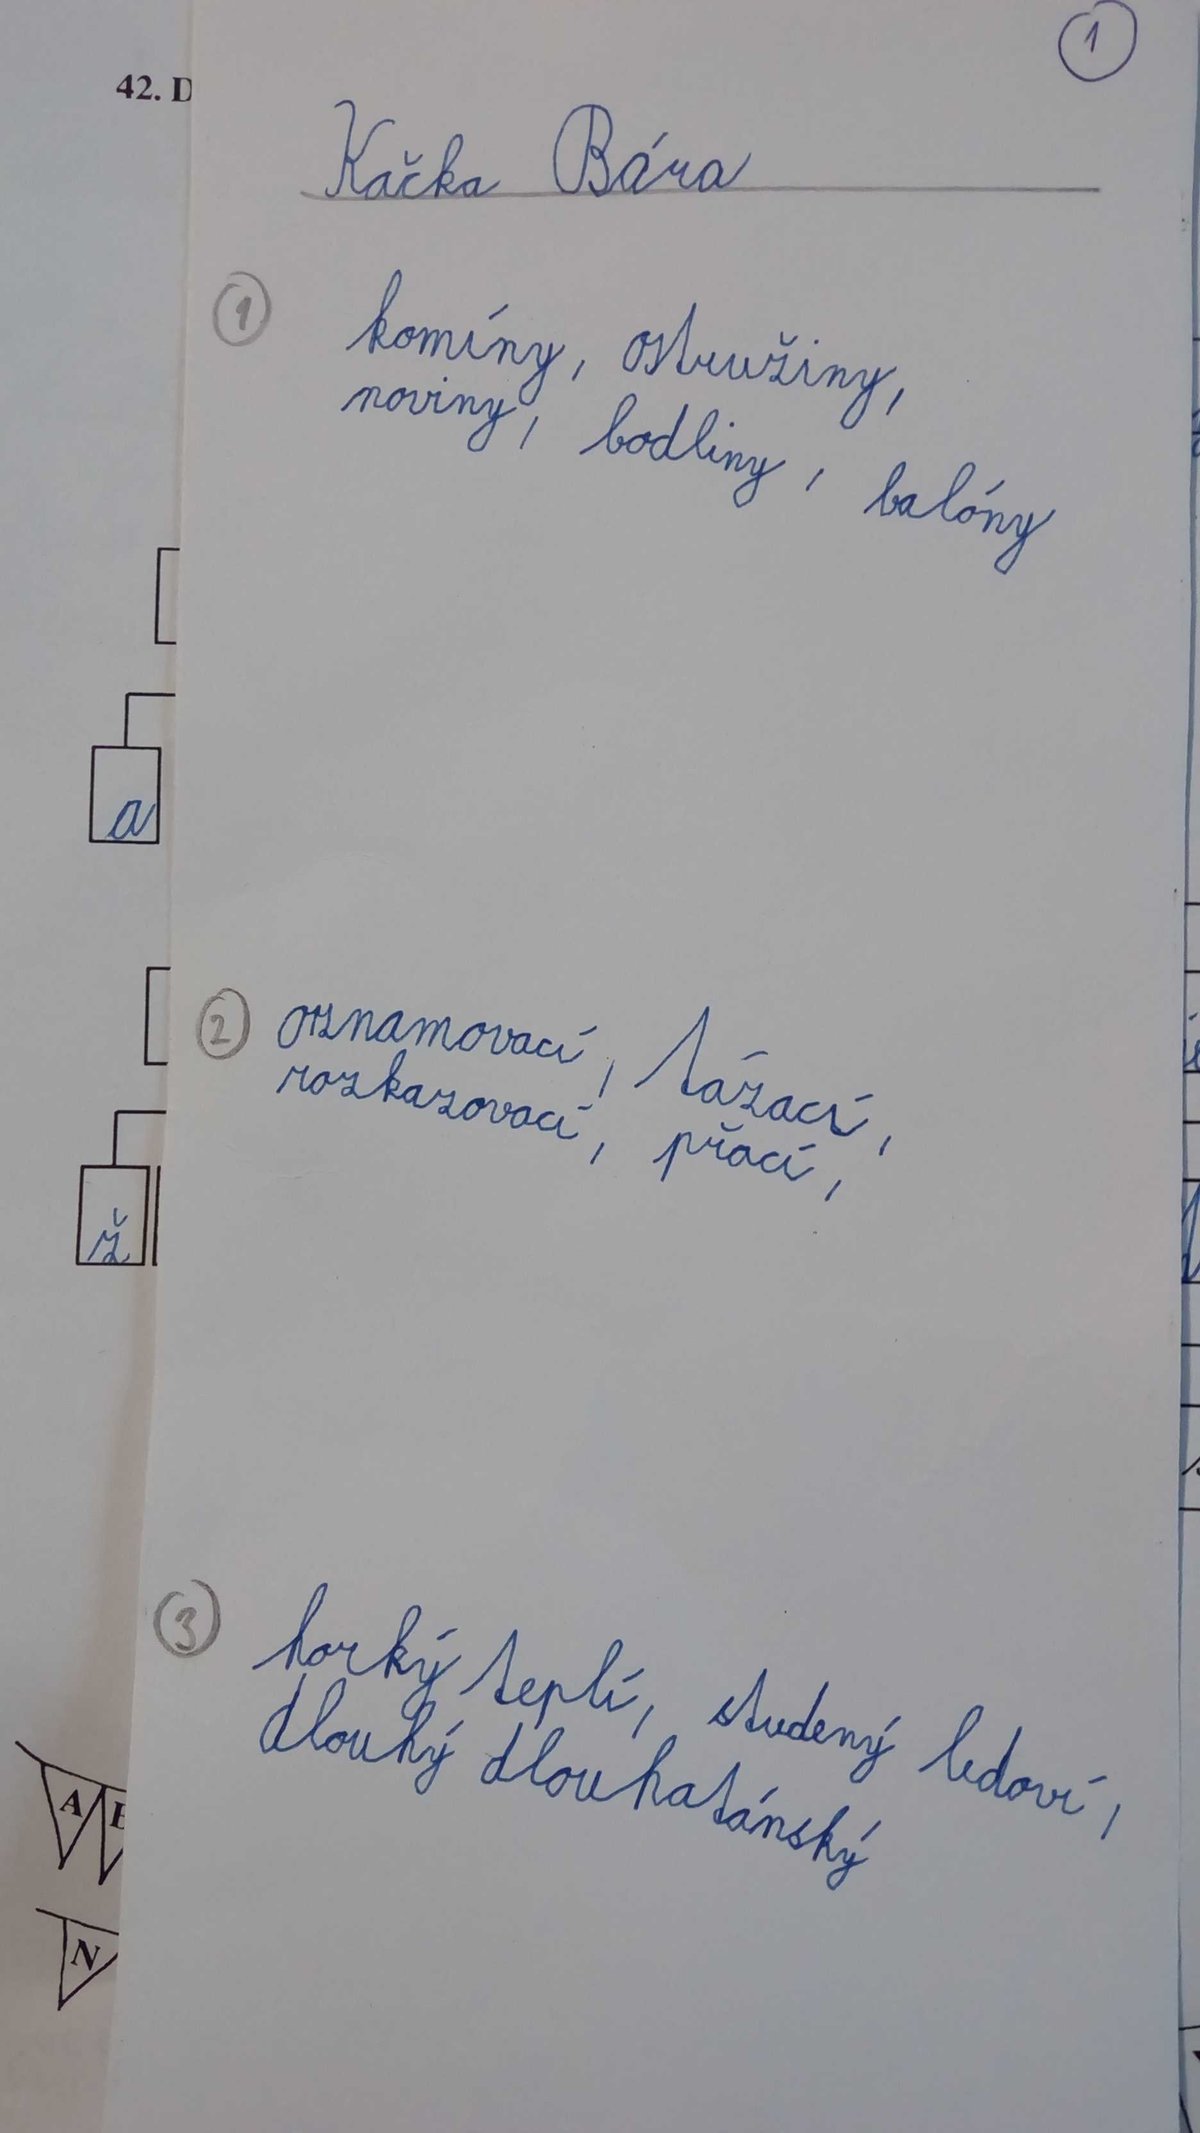 1
42. D
Kačka Bára
1
komíny, ostružiny,
noviny, bodliny, balóny
a
2
oznamovací, tázací,
rozkazovací, přací,
ž
3
horký teplí, studený ledoví,
dlouhý dlouhatánský
A
N